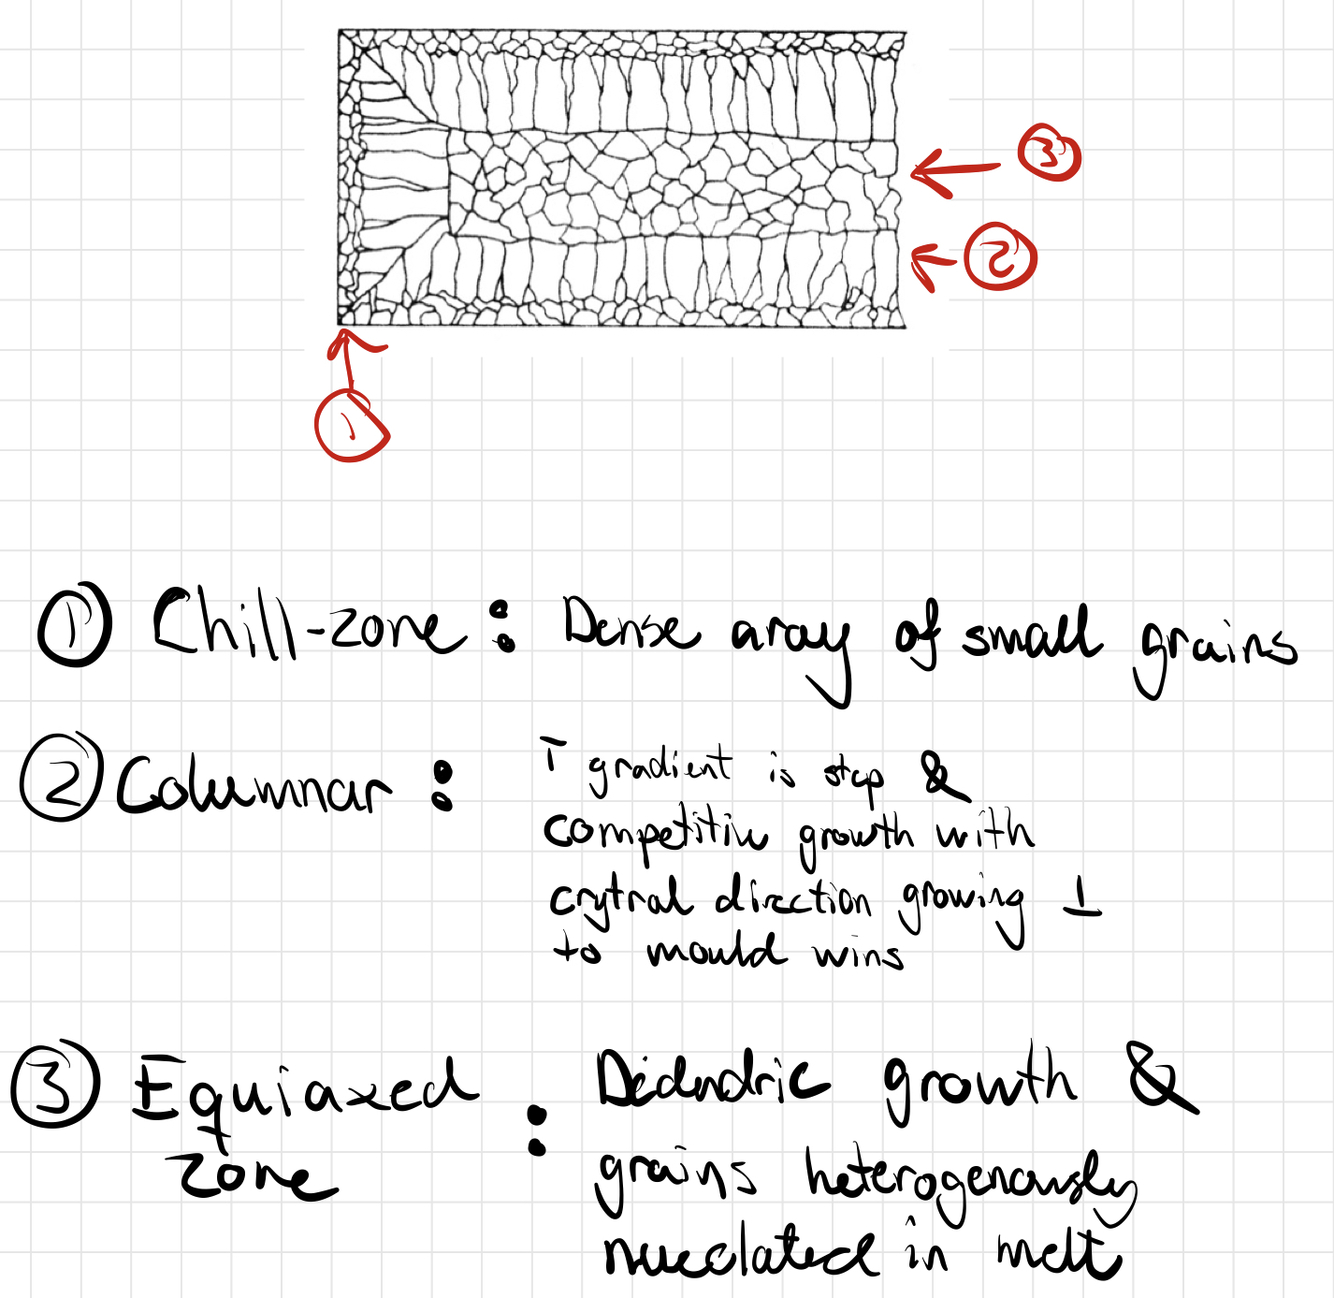 ③
②
①
① Chill-zone : Dense aray of small grains
② Columnar : T gradient is step &
competitiv growth with
crytral direction growing ⊥
to mould wins
③ Equiaxed : Didndric growth &
zone grains heterogenously
nucelated in melt